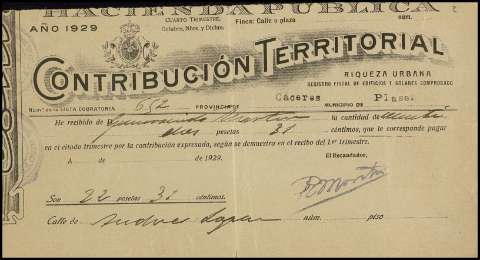 HACIENDA PÚBLICA
AÑO 1929
CUARTO TRIMESTRE
Octubre, Nbre. y Dicbre.
Finca: Calle o plaza núm.
CONTRIBUCIÓN TERRITORIAL
RIQUEZA URBANA
REGISTRO FISCAL DE EDIFICIOS Y SOLARES COMPROBADO
LISTA COBRATORIA 652 PROVINCIA DE Cáceres MUNICIPIO DE Plasª
He recibido de la cantidad de
dos pesetas 31 céntimos, que le corresponde pagar
en el citado trimestre por la contribución expresada, según se demuestra en el recibo del 1er trimestre.
A de de 1929.
El Recaudador,
Son 22 pesetas 31 céntimos.
Calle de núm. piso